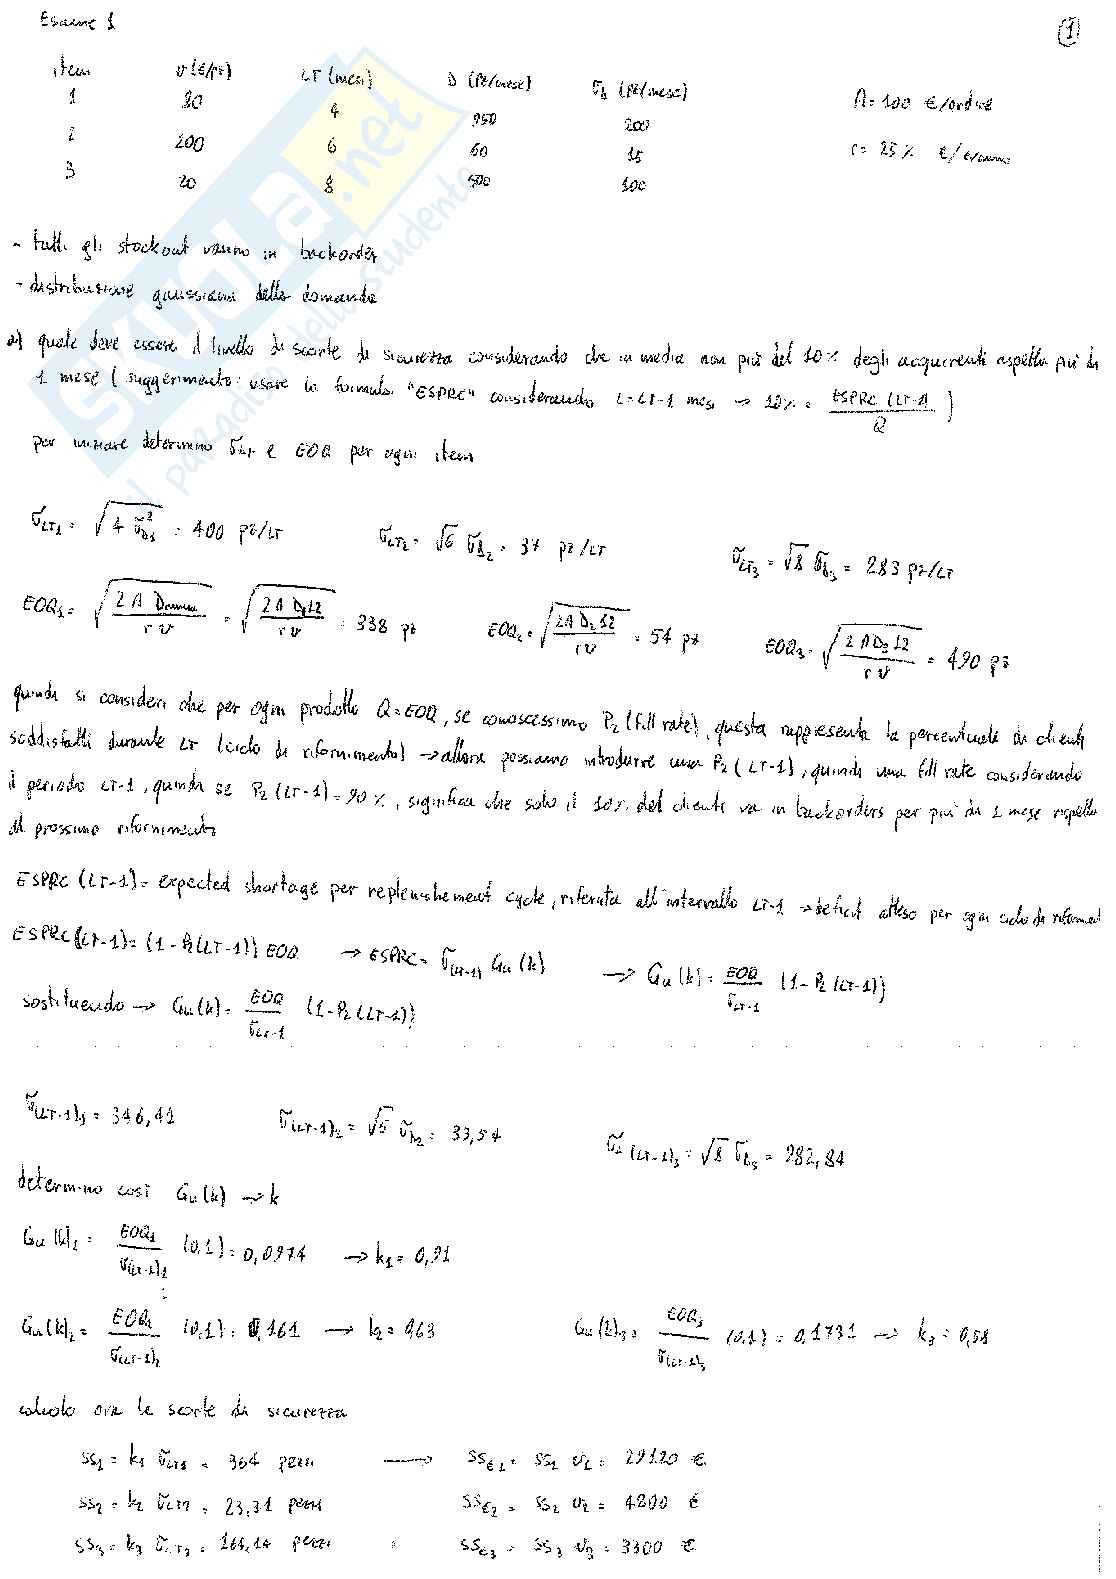 Esame 1
①
item v (€/pz) LT (mesi) D (pz/mese) σD (pz/mese)
1 80 4 950 200 A = 100 €/ordine
2 200 6 60 15 r = 25 % €/€/anno
3 20 8 500 100
- tutti gli stockout vanno in backorder
- distribuzione gaussiana della domanda
a) quale deve essere il livello di scorte di sicurezza considerando che in media non più del 10% degli acquirenti aspetta più di
1 mese (suggerimento: usare la formula "ESPRC" considerando L=LT-1 mesi → 10% = ESPRC (LT-1) / Q )
per iniziare determino σLT e EOQ per ogni item
σLT1 = √4 σD1² = 400 pz/LT σLT2 = √6 σD2 = 37 pz/LT σLT3 = √8 σD3 = 283 pz/LT
EOQ1 = √(2 A Dannua / r v) = √(2 A D1 12 / r v) = 338 pz EOQ2 = √(2A D2 12 / r v) = 54 pz EOQ3 = √(2 A D3 12 / r v) = 490 pz
quindi si consideri che per ogni prodotto Q=EOQ, se conoscessimo P2 (fill rate), questa rappresenta la percentuale di clienti
soddisfatti durante LT (ciclo di rifornimento) → allora possiamo introdurre una P2 (LT-1), quindi una fill rate considerando
il periodo LT-1, quindi se P2 (LT-1) = 90 %, significa che solo il 10% dei clienti va in backorders per più di 1 mese rispetto
al prossimo rifornimento
ESPRC (LT-1) = expected shortage per replenishment cycle, riferita all'intervallo LT-1 → deficit atteso per ogni ciclo di riforniment
ESPRC(LT-1) = (1-P2(LT-1)) EOQ → ESPRC = σ(LT-1) Gu (k) → Gu (k) = EOQ / σLT-1 (1- P2 (LT-1))
sostituendo → Gu(k) = EOQ / σLT-1 (1-P2 (LT-1))
σ(LT-1)1 = 346,41 σ(LT-1)2 = √5 σD2 = 33,54 σ(LT-1)3 = √8 σD3 = 282,84
determino così Gu(k) → k
Gu (k)1 = EOQ1 / σ(LT-1)1 (0,1) = 0,0974 → k1 = 0,91
Gu(k)2 = EOQ2 / σ(LT-1)2 (0,1) = 0,161 → k2 = 0,63 Gu(k)3 = EOQ3 / σ(LT-1)3 (0,1) = 0,1731 → k3 = 0,58
calcolo ora le scorte di sicurezza
SS1 = k1 σLT1 = 364 pezzi → SS€1 = SS1 v1 = 29120 €
SS2 = k2 σLT2 = 23,31 pezzi SS€2 = SS2 v2 = 4800 €
SS3 = k3 σLT3 = 164,14 pezzi SS€3 = SS3 v3 = 3300 €
SKUOLA.net
il paradiso dello studente